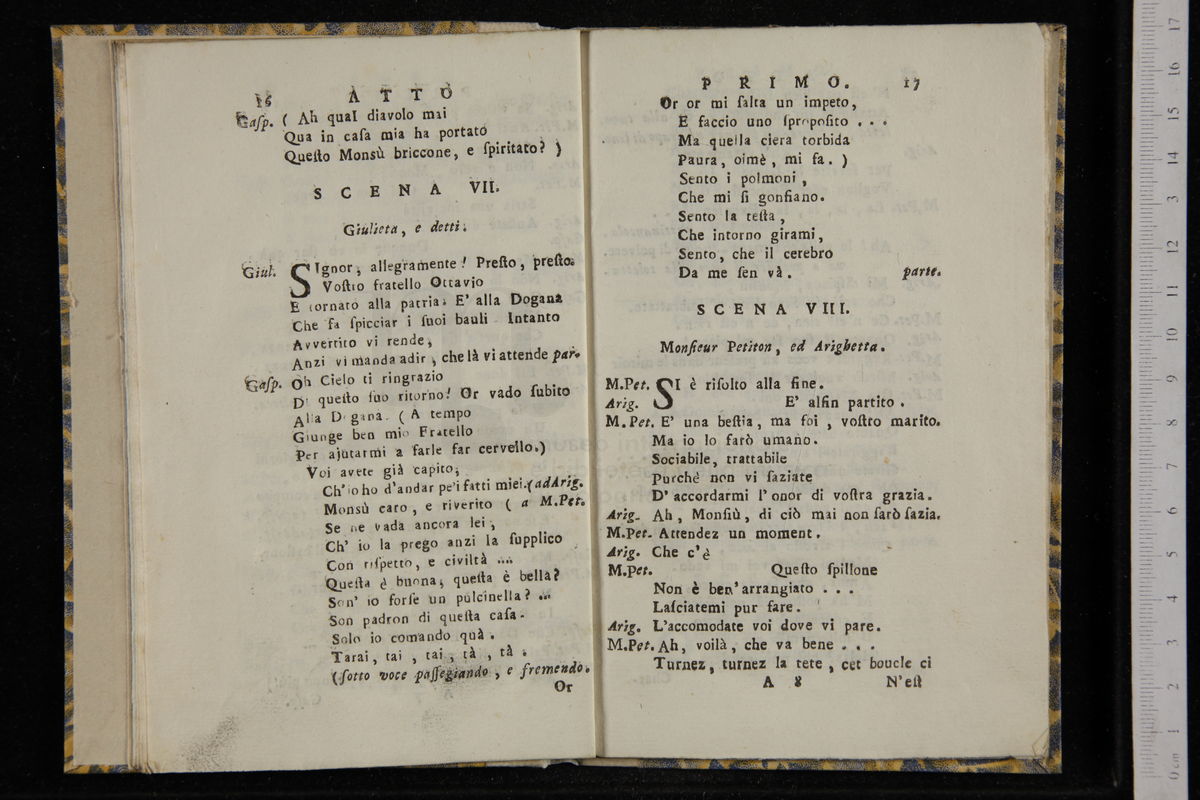 16 ATTO
Gasp. ( Ah qual diavolo mai
Qua in casa mia ha portato
Questo Monsù briccone, e spiritato? )
SCENA VII.
Giulieta, e detti.
Giul. SIgnor, allegramente! Presto, presto.
Vostro fratello Ottavio
E tornato alla patria. E' alla Dogana
Che fa spicciar i suoi bauli Intanto
Avvertito vi rende,
Anzi vi manda a dir, che là vi attende par.
Gasp. Oh Cielo ti ringrazio
Di questo suo ritorno! Or vado subito
Alla Dogana. ( A tempo
Giunge ben mio Fratello
Per ajutarmi a farle far cervello.)
Voi avete già capito,
Ch'io ho d'andar pe'i fatti miei. (ad Arig.
Monsù caro, e riverito ( a M.Pet.
Se ne vada ancora lei,
Ch' io la prego anzi la supplico
Con rispetto, e civiltà ....
Questa è buona, questa è bella?
Son' io forse un pulcinella? ...
Son padron di questa casa.
Solo io comando quà.
Tarai, tai, tai, tà, tà.
(sotto voce passegiando, e fremendo.
Or
PRIMO. 17
Or or mi salta un impeto,
E faccio uno sproposito ...
Ma quella ciera torbida
Paura, oimè, mi fa. )
Sento i polmoni,
Che mi si gonfiano.
Sento la testa,
Che intorno girami,
Sento, che il cerebro
Da me sen và. parte.
SCENA VIII.
Monsieur Petiton, ed Arighetta.
M.Pet. SI è risolto alla fine.
Arig. E' alfin partito.
M.Pet. E' una bestia, ma foi, vostro marito.
Ma io lo farò umano.
Sociabile, trattabile
Purchè non vi saziate
D'accordarmi l'onor di vostra grazia.
Arig. Ah, Monsiù, di ciò mai non sarò sazia.
M.Pet. Attendez un moment.
Arig. Che c'è
M.Pet. Questo spillone
Non è ben' arrangiato ...
Lasciatemi pur fare.
Arig. L'accomodate voi dove vi pare.
M.Pet. Ah, voilà, che va bene ...
Turnez, turnez la tete, cet boucle ci
A 8 N'est